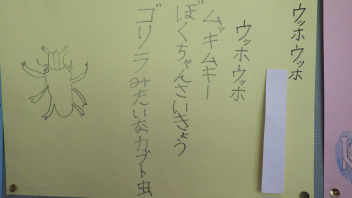 ウッホウッホ
ウッホウッホ
ムッキムキー
ぼくちゃんさいきょう
ゴリラみたいなカブト虫